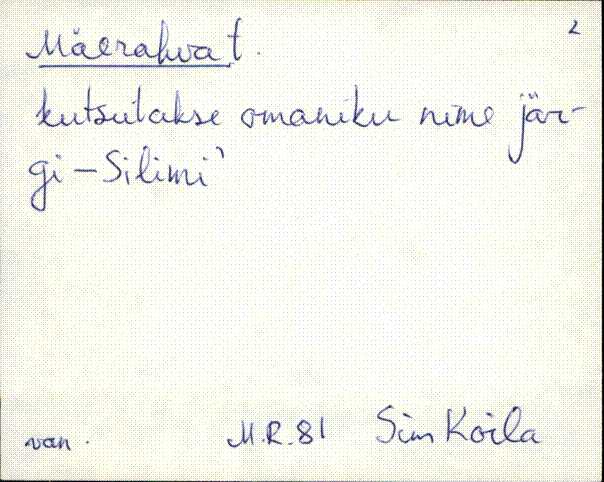 2
Mäerahvat.
kutsutakse omaniku nime jär-
gi - Silimi'
van. M.R. 81 Sim Koila